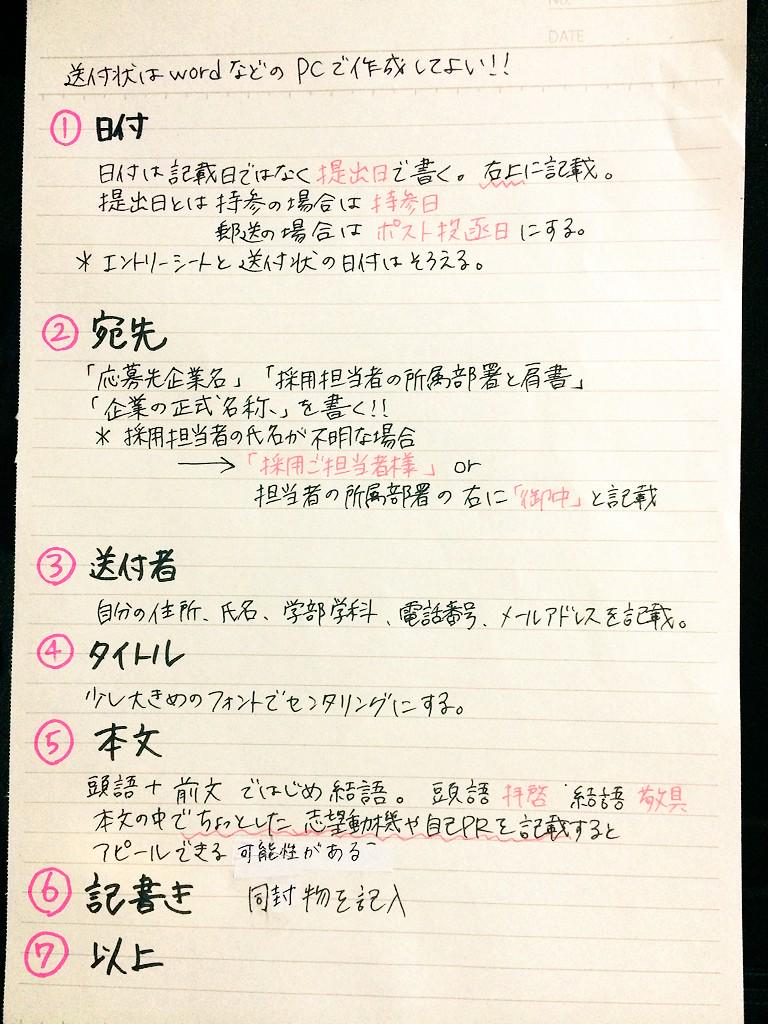 No.
DATE
送付状はwordなどのPCで作成してよい!!
① 日付
日付は記載日ではなく提出日で書く。右上に記載。
提出日とは持参の場合は持参日
郵送の場合はポスト投函日にする。
* エントリーシートと送付状の日付はそろえる。
② 宛先
「応募先企業名」「採用担当者の所属部署と肩書」
「企業の正式名称、」を書く!!
* 採用担当者の氏名が不明な場合
→「採用ご担当者様」 or
担当者の所属部署の右に「御中」と記載
③ 送付者
自分の住所、氏名、学部学科、電話番号、メールアドレスを記載。
④ タイトル
少し大きめのフォントでセンタリングにする。
⑤ 本文
頭語+前文ではじめ結語。 頭語 拝啓 結語 敬具
本文の中でちょっとした志望動機や自己PRを記載すると
アピールできる可能性がある
⑥ 記書き 同封物を記入
⑦ 以上